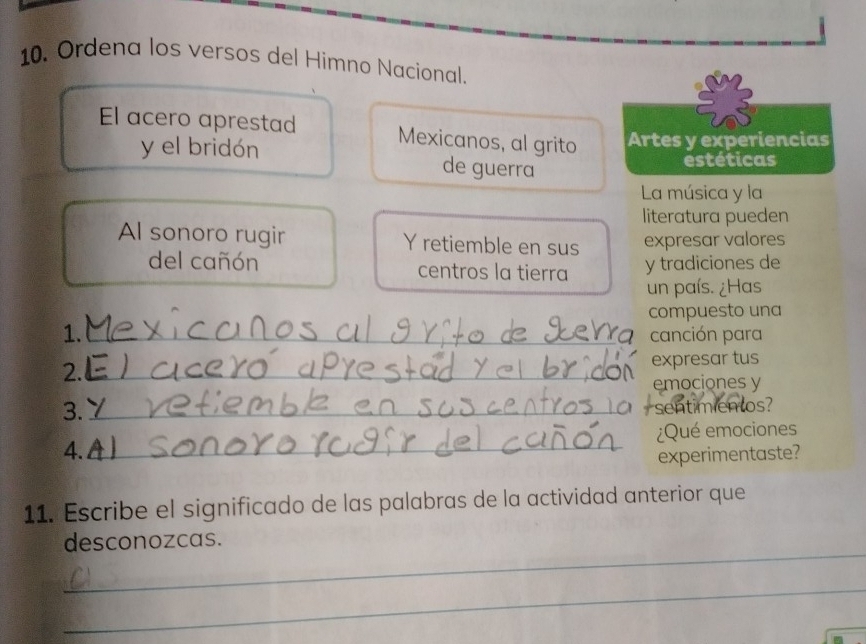 10. Ordena los versos del Himno Nacional.
El acero aprestad
y el bridón
Mexicanos, al grito
de guerra
Al sonoro rugir
del cañón
Y retiemble en sus
centros la tierra
1. Mexicanos al grito de gerra
2. El acero aprestad y el bridón
3. Y retiemble en sus centros la tierra
4. Al sonoro rugir del cañón
Artes y experiencias
estéticas
La música y la
literatura pueden
expresar valores
y tradiciones de
un país. ¿Has
compuesto una
canción para
expresar tus
emociones y
sentimientos?
¿Qué emociones
experimentaste?
11. Escribe el significado de las palabras de la actividad anterior que
desconozcas.